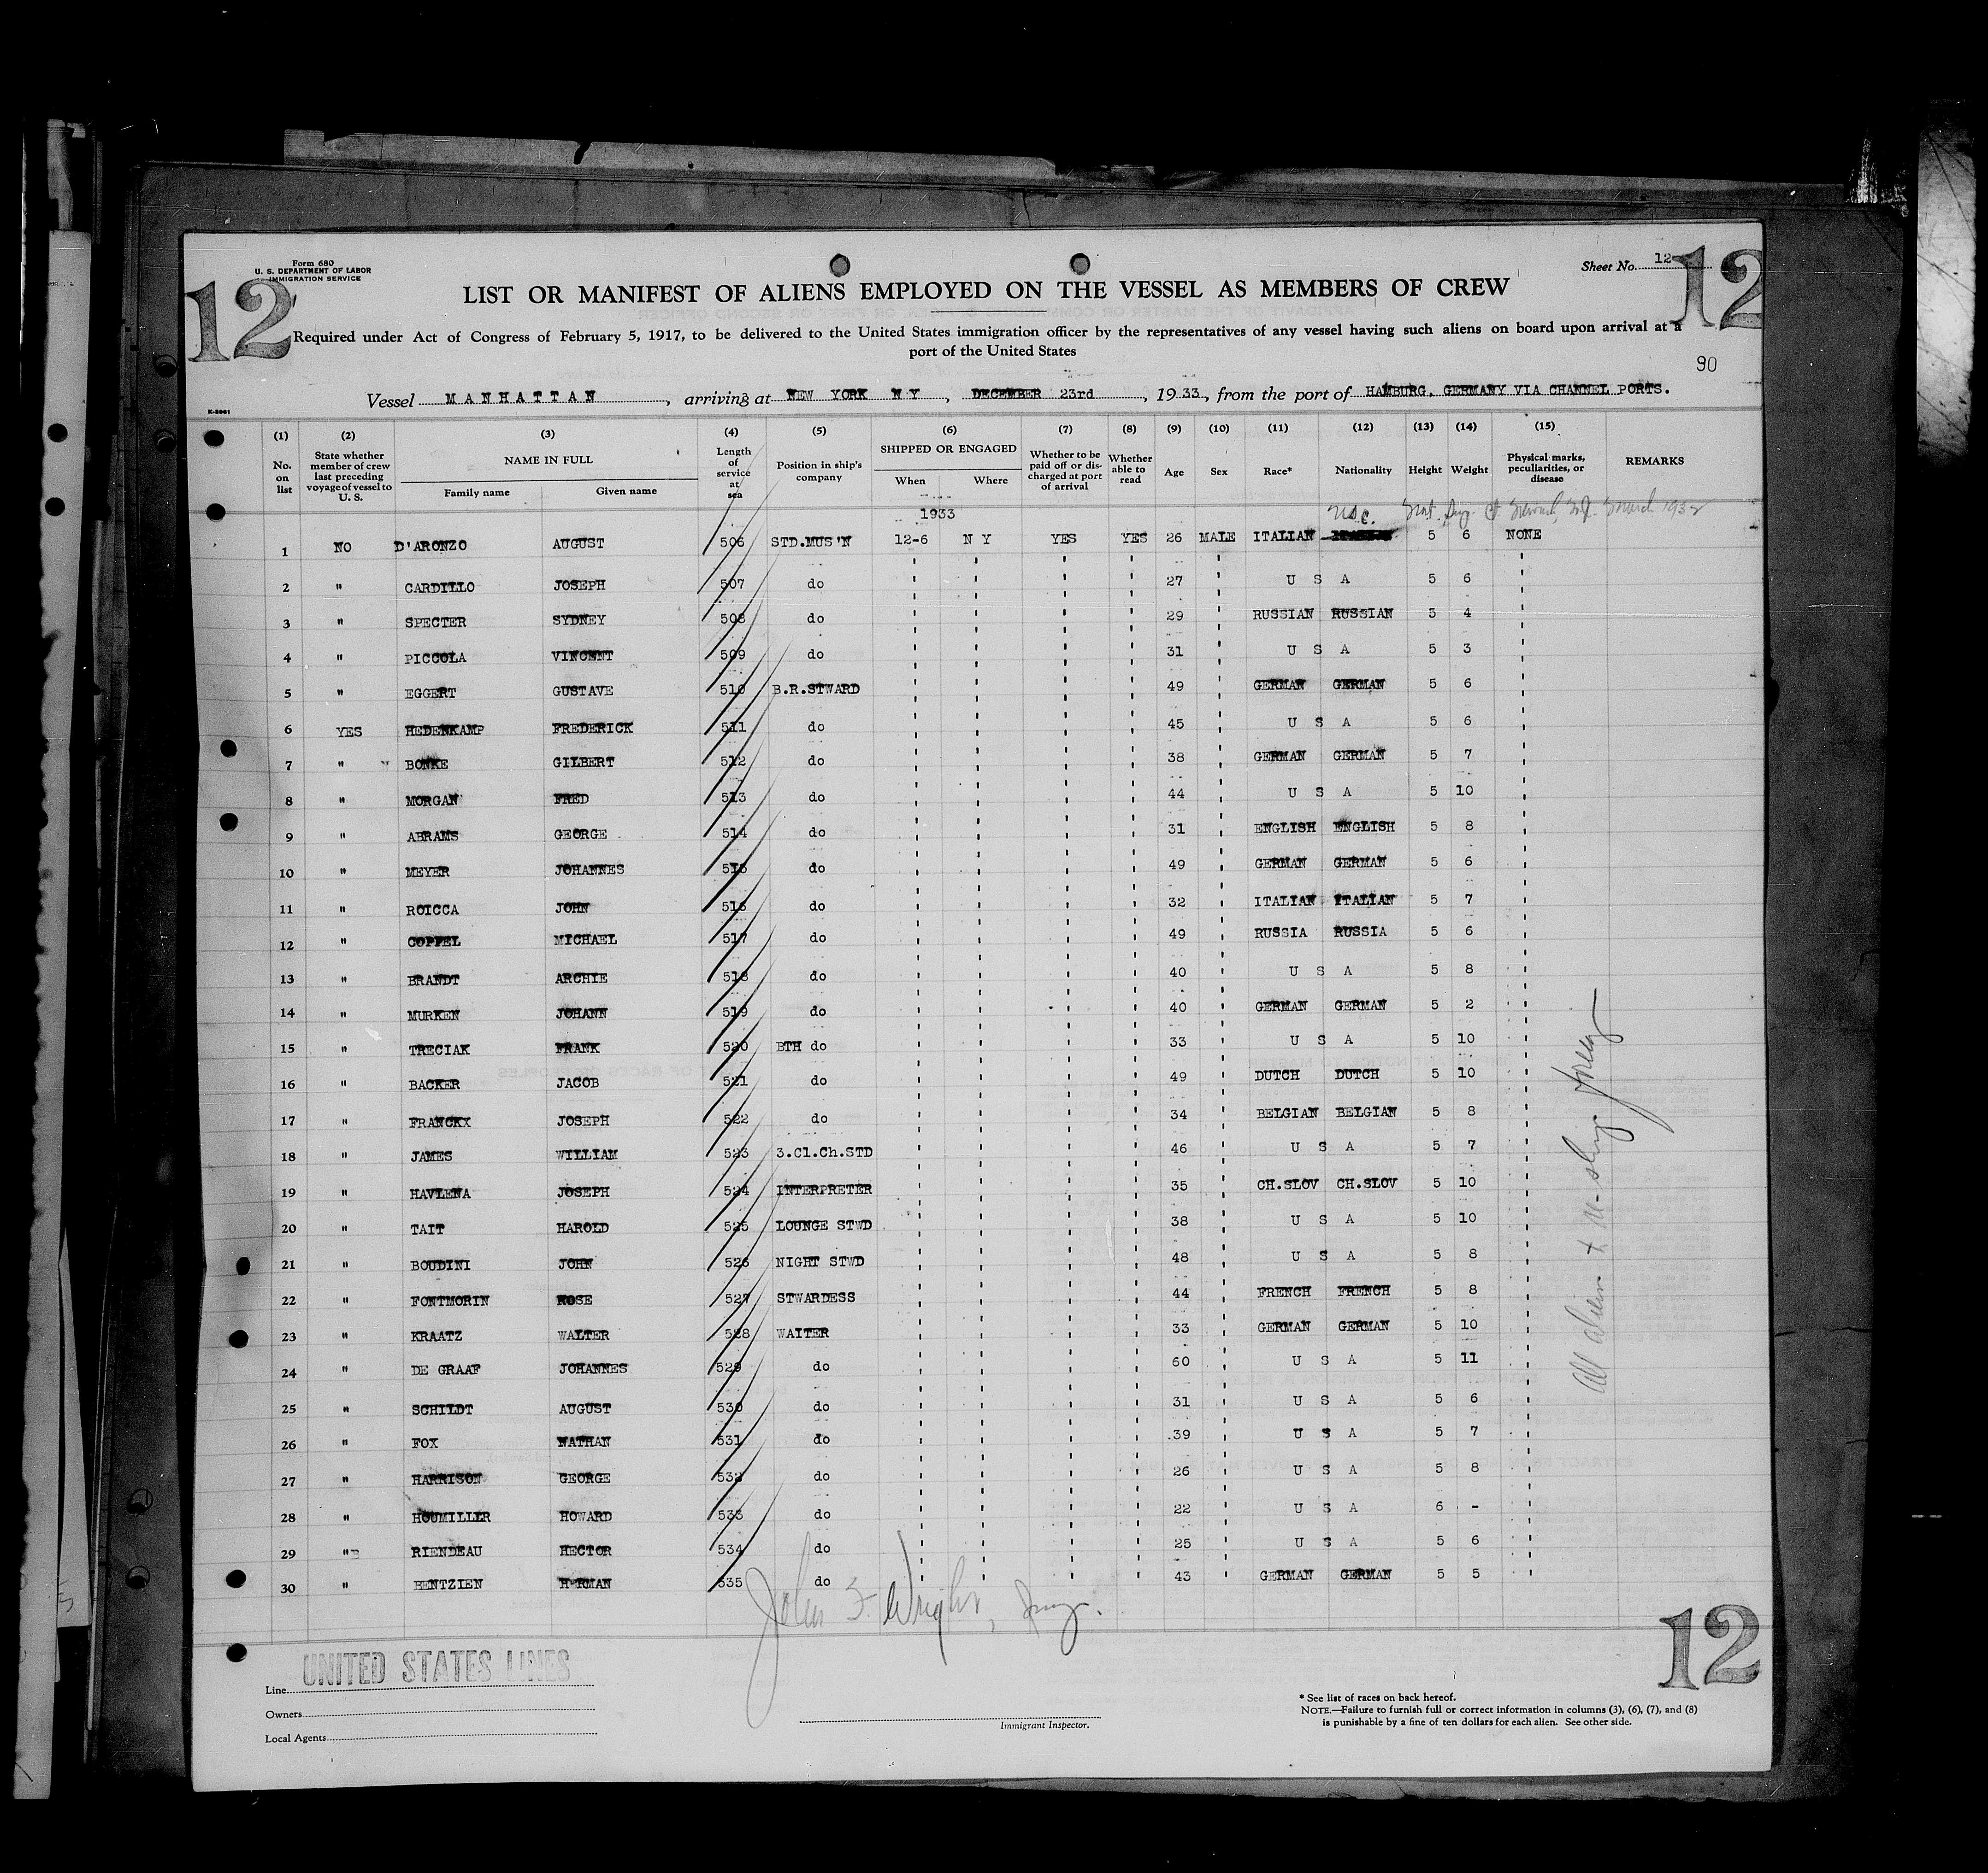 Form 680
U. S. DEPARTMENT OF LABOR
IMMIGRATION SERVICE
12
12
Sheet No. 12
LIST OR MANIFEST OF ALIENS EMPLOYED ON THE VESSEL AS MEMBERS OF CREW
Required under Act of Congress of February 5, 1917, to be delivered to the United States immigration officer by the representatives of any vessel having such aliens on board upon arrival at a
port of the United States
90
Vessel MANHATTAN, arriving at NEW YORK N Y, DECEMBER 23rd, 1933, from the port of HAMBURG, GERMANY VIA CHANNEL PORTS.
(1) No. on list (2) State whether member of crew last preceding voyage of vessel to U. S. (3) NAME IN FULL Family name Given name (4) Length of service at sea (5) Position in ship's company (6) SHIPPED OR ENGAGED When Where (7) Whether to be paid off or discharged at port of arrival (8) Whether able to read (9) Age (10) Sex (11) Race* (12) Nationality (13) Height (14) Weight (15) Physical marks, peculiarities, or disease REMARKS
1933
USC. March 1932
1 NO D'ARONZO AUGUST 506 STD.MUS'N 12-6 N Y YES YES 26 MALE ITALIAN 5 6 NONE
2 " CARDILLO JOSEPH 507 do " " " " 27 " U S A 5 6 "
3 " SPECTER SYDNEY 508 do " " " " 29 " RUSSIAN RUSSIAN 5 4 "
4 " PICCOLA VINCENT 509 do " " " " 31 " U S A 5 3 "
5 " EGGERT GUSTAVE 510 B.R.STWARD " " " " 49 " GERMAN GERMAN 5 6 "
6 YES HEDENKAMP FREDERICK 511 do " " " " 45 " U S A 5 6 "
7 " BONKE GILBERT 512 do " " " " 38 " GERMAN GERMAN 5 7 "
8 " MORGAN FRED 513 do " " " " 44 " U S A 5 10 "
9 " ABRAMS GEORGE 514 do " " " " 31 " ENGLISH ENGLISH 5 8 "
10 " MEYER JOHANNES 515 do " " " " 49 " GERMAN GERMAN 5 6 "
11 " ROICCA JOHN 516 do " " " " 32 " ITALIAN ITALIAN 5 7 "
12 " COPPEL MICHAEL 517 do " " " " 49 " RUSSIA RUSSIA 5 6 "
13 " BRANDT ARCHIE 518 do " " " " 40 " U S A 5 8 "
14 " MURKEN JOHANN 519 do " " " " 40 " GERMAN GERMAN 5 2 "
15 " TRECIAK FRANK 520 BTH do " " " " 33 " U S A 5 10 "
16 " BACKER JACOB 521 do " " " " 49 " DUTCH DUTCH 5 10 "
17 " FRANCKX JOSEPH 522 do " " " " 34 " BELGIAN BELGIAN 5 8 "
18 " JAMES WILLIAM 523 3.Cl.Ch.STD " " " " 46 " U S A 5 7 "
19 " HAVLENA JOSEPH 524 INTERPRETER " " " " 35 " CH.SLOV CH.SLOV 5 10 "
20 " TAIT HAROLD 525 LOUNGE STWD " " " " 38 " U S A 5 10 "
21 " BOUDINI JOHN 526 NIGHT STWD " " " " 48 " U S A 5 8 "
22 " FONTMORIN ROSE 527 STWARDESS " " " " 44 " FRENCH FRENCH 5 8 "
23 " KRAATZ WALTER 528 WAITER " " " " 33 " GERMAN GERMAN 5 10 "
24 " DE GRAAF JOHANNES 529 do " " " " 60 " U S A 5 11 "
25 " SCHILDT AUGUST 530 do " " " " 31 " U S A 5 6 "
26 " FOX NATHAN 531 do " " " " 39 " U S A 5 7 "
27 " HARRISON GEORGE 532 do " " " " 26 " U S A 5 8 "
28 " HOUMILLER HOWARD 533 do " " " " 22 " U S A 6 - "
29 " RIENDEAU HECTOR 534 do " " " " 25 " U S A 5 6 "
30 " BENTZIEN HERMAN 535 do " " " " 43 " GERMAN GERMAN 5 5 "
John F. Wright, Insp.
12
Line UNITED STATES LINES
Owners
Local Agents
Immigrant Inspector.
* See list of races on back hereof.
NOTE.—Failure to furnish full or correct information in columns (3), (6), (7), and (8)
is punishable by a fine of ten dollars for each alien. See other side.